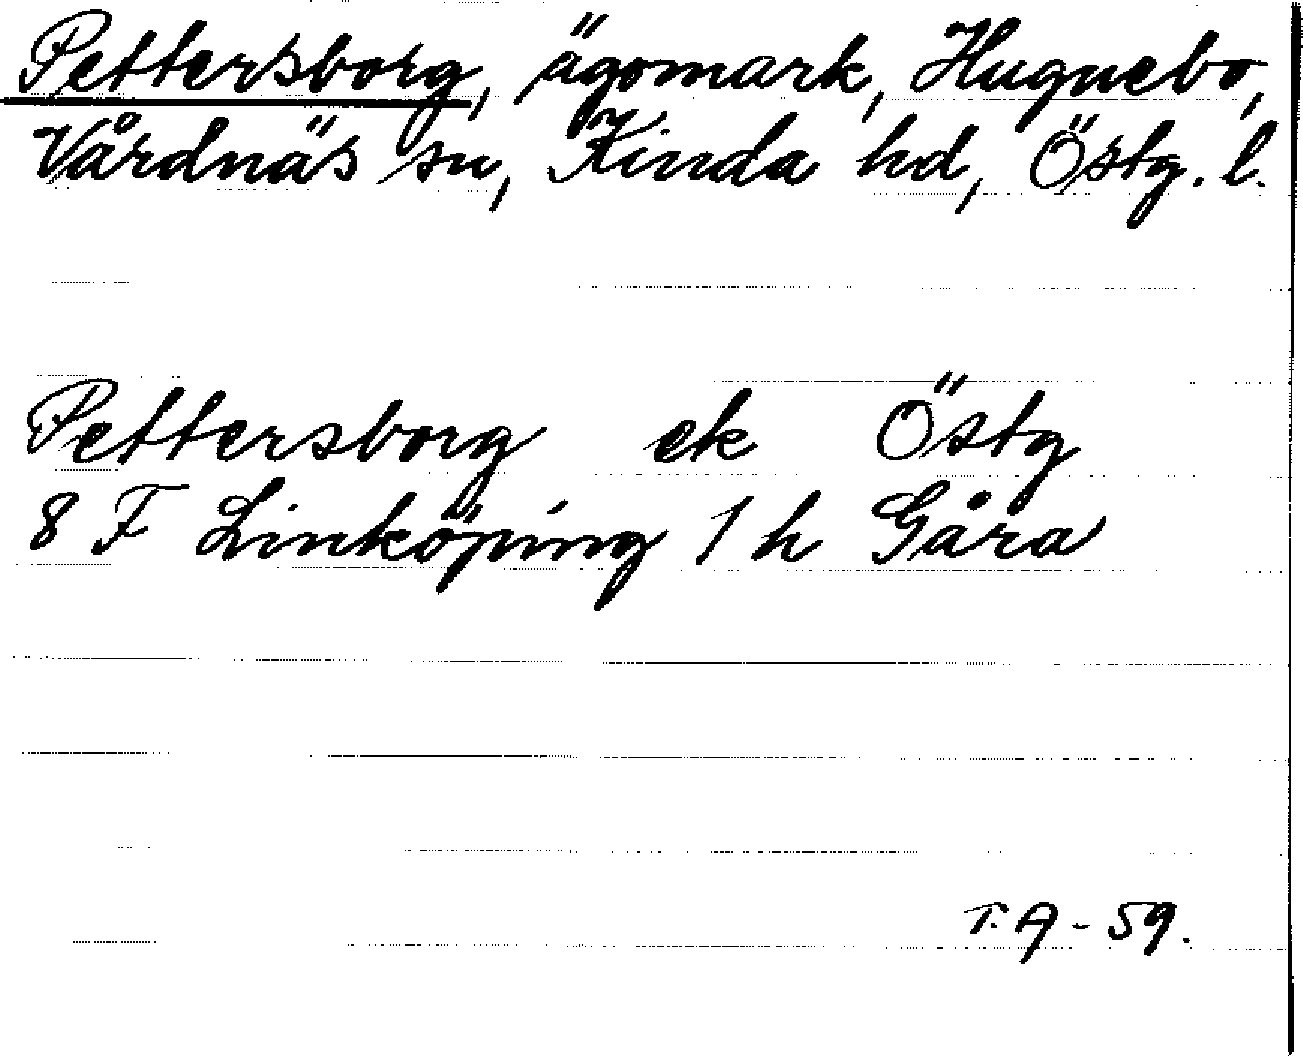 Pettersborg, ägomark, Hugnebo,
Vårdnäs sn, Kinda hd, Östg. l.
Pettersborg ek Östg
8 F Linköping 1 h Gåra
T. A - 59.